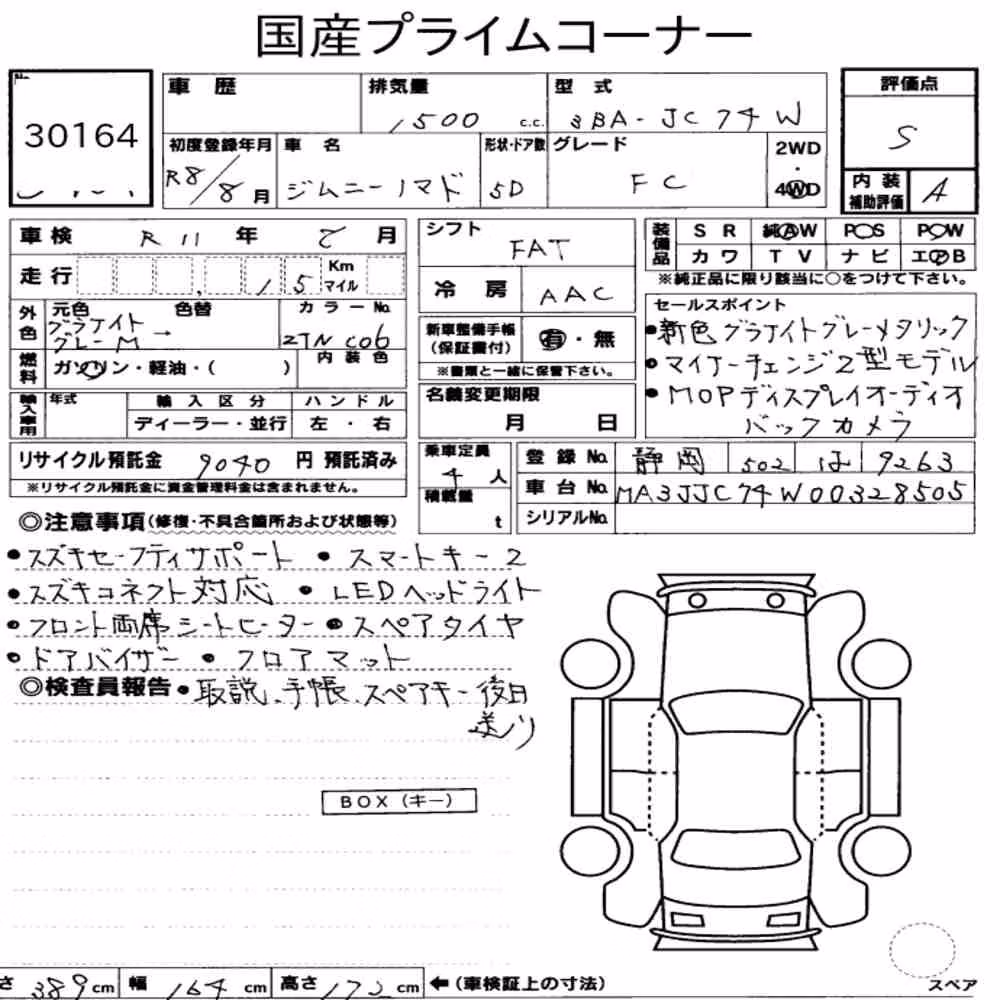 国産プライムコーナー
No.
30164
車歴
排気量 1500 c.c.
型式 3BA-JC74W
評価点 S
初度登録年月 R8/8月
車名 ジムニーノマド
形状・ドア数 5D
グレード FC
2WD・4WD
内装補助評価 A
車検 R11年 月
走行 15 Km マイル
外色 元色 色替 カラーNo.
グラナイトグレーM → ZTN C06
燃料 ガソリン・軽油・( ) 内装色
輸入車用 年式 輸入区分 ハンドル
ディーラー・並行 左・右
リサイクル預託金 9040円 預託済み
※リサイクル預託金に資金管理料金は含まれません。
シフト FAT
冷房 AAC
新車整備手帳(保証書付) 有・無
※書類と一緒に保管下さい。
名義変更期限
月 日
乗車定員 4人
積載量 t
装備品 SR 純AW PS PW
カワ TV ナビ エアB
※純正品に限り該当に○をつけて下さい。
セールスポイント
●新色グラナイトグレーメタリック
●マイナーチェンジ2型モデル
●MOPディスプレイオーディオ
バックカメラ
登録No. 静岡 502 は 9263
車台No. MA3JJC74W00328505
シリアルNo.
◎注意事項(修復・不具合箇所および状態等)
●スズキセーフティサポート ●スマートキー2
●スズキコネクト対応 ●LEDヘッドライト
●フロント両席シートヒーター ●スペアタイヤ
●ドアバイザー ●フロアマット
◎検査員報告 ●取説、手帳、スペアキー後日
送り
BOX(キー)
さ 389cm 幅 164cm 高さ 172cm ←(車検証上の寸法)
スペア